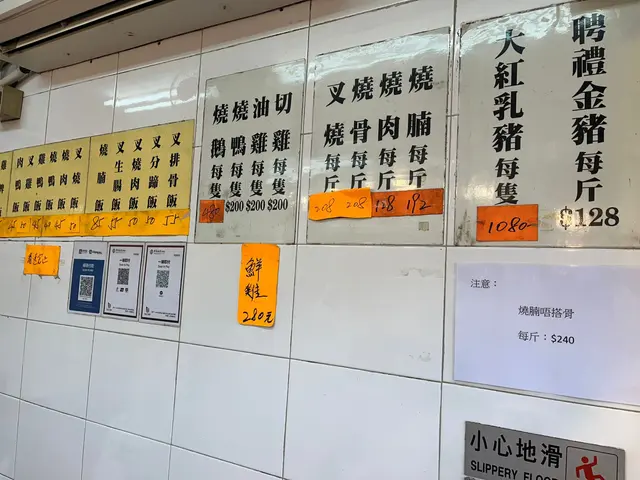 聘禮金豬每斤
$128
大紅乳豬每隻
1080
燒腩每斤
192
燒肉每斤
128
燒骨每斤
208
叉燒每斤
208
切雞每隻
$200
油雞每隻
$200
燒鴨每隻
$200
燒鵝每隻
叉排骨飯
55
叉分蹄飯
50
叉燒肉飯
50
叉生腸飯
55
燒腩飯
燒肉飯
燒鴨飯
鮮雞
280元
注意：
燒腩唔搭骨
每斤：$240
小心地滑
SLIPPERY FLOOR